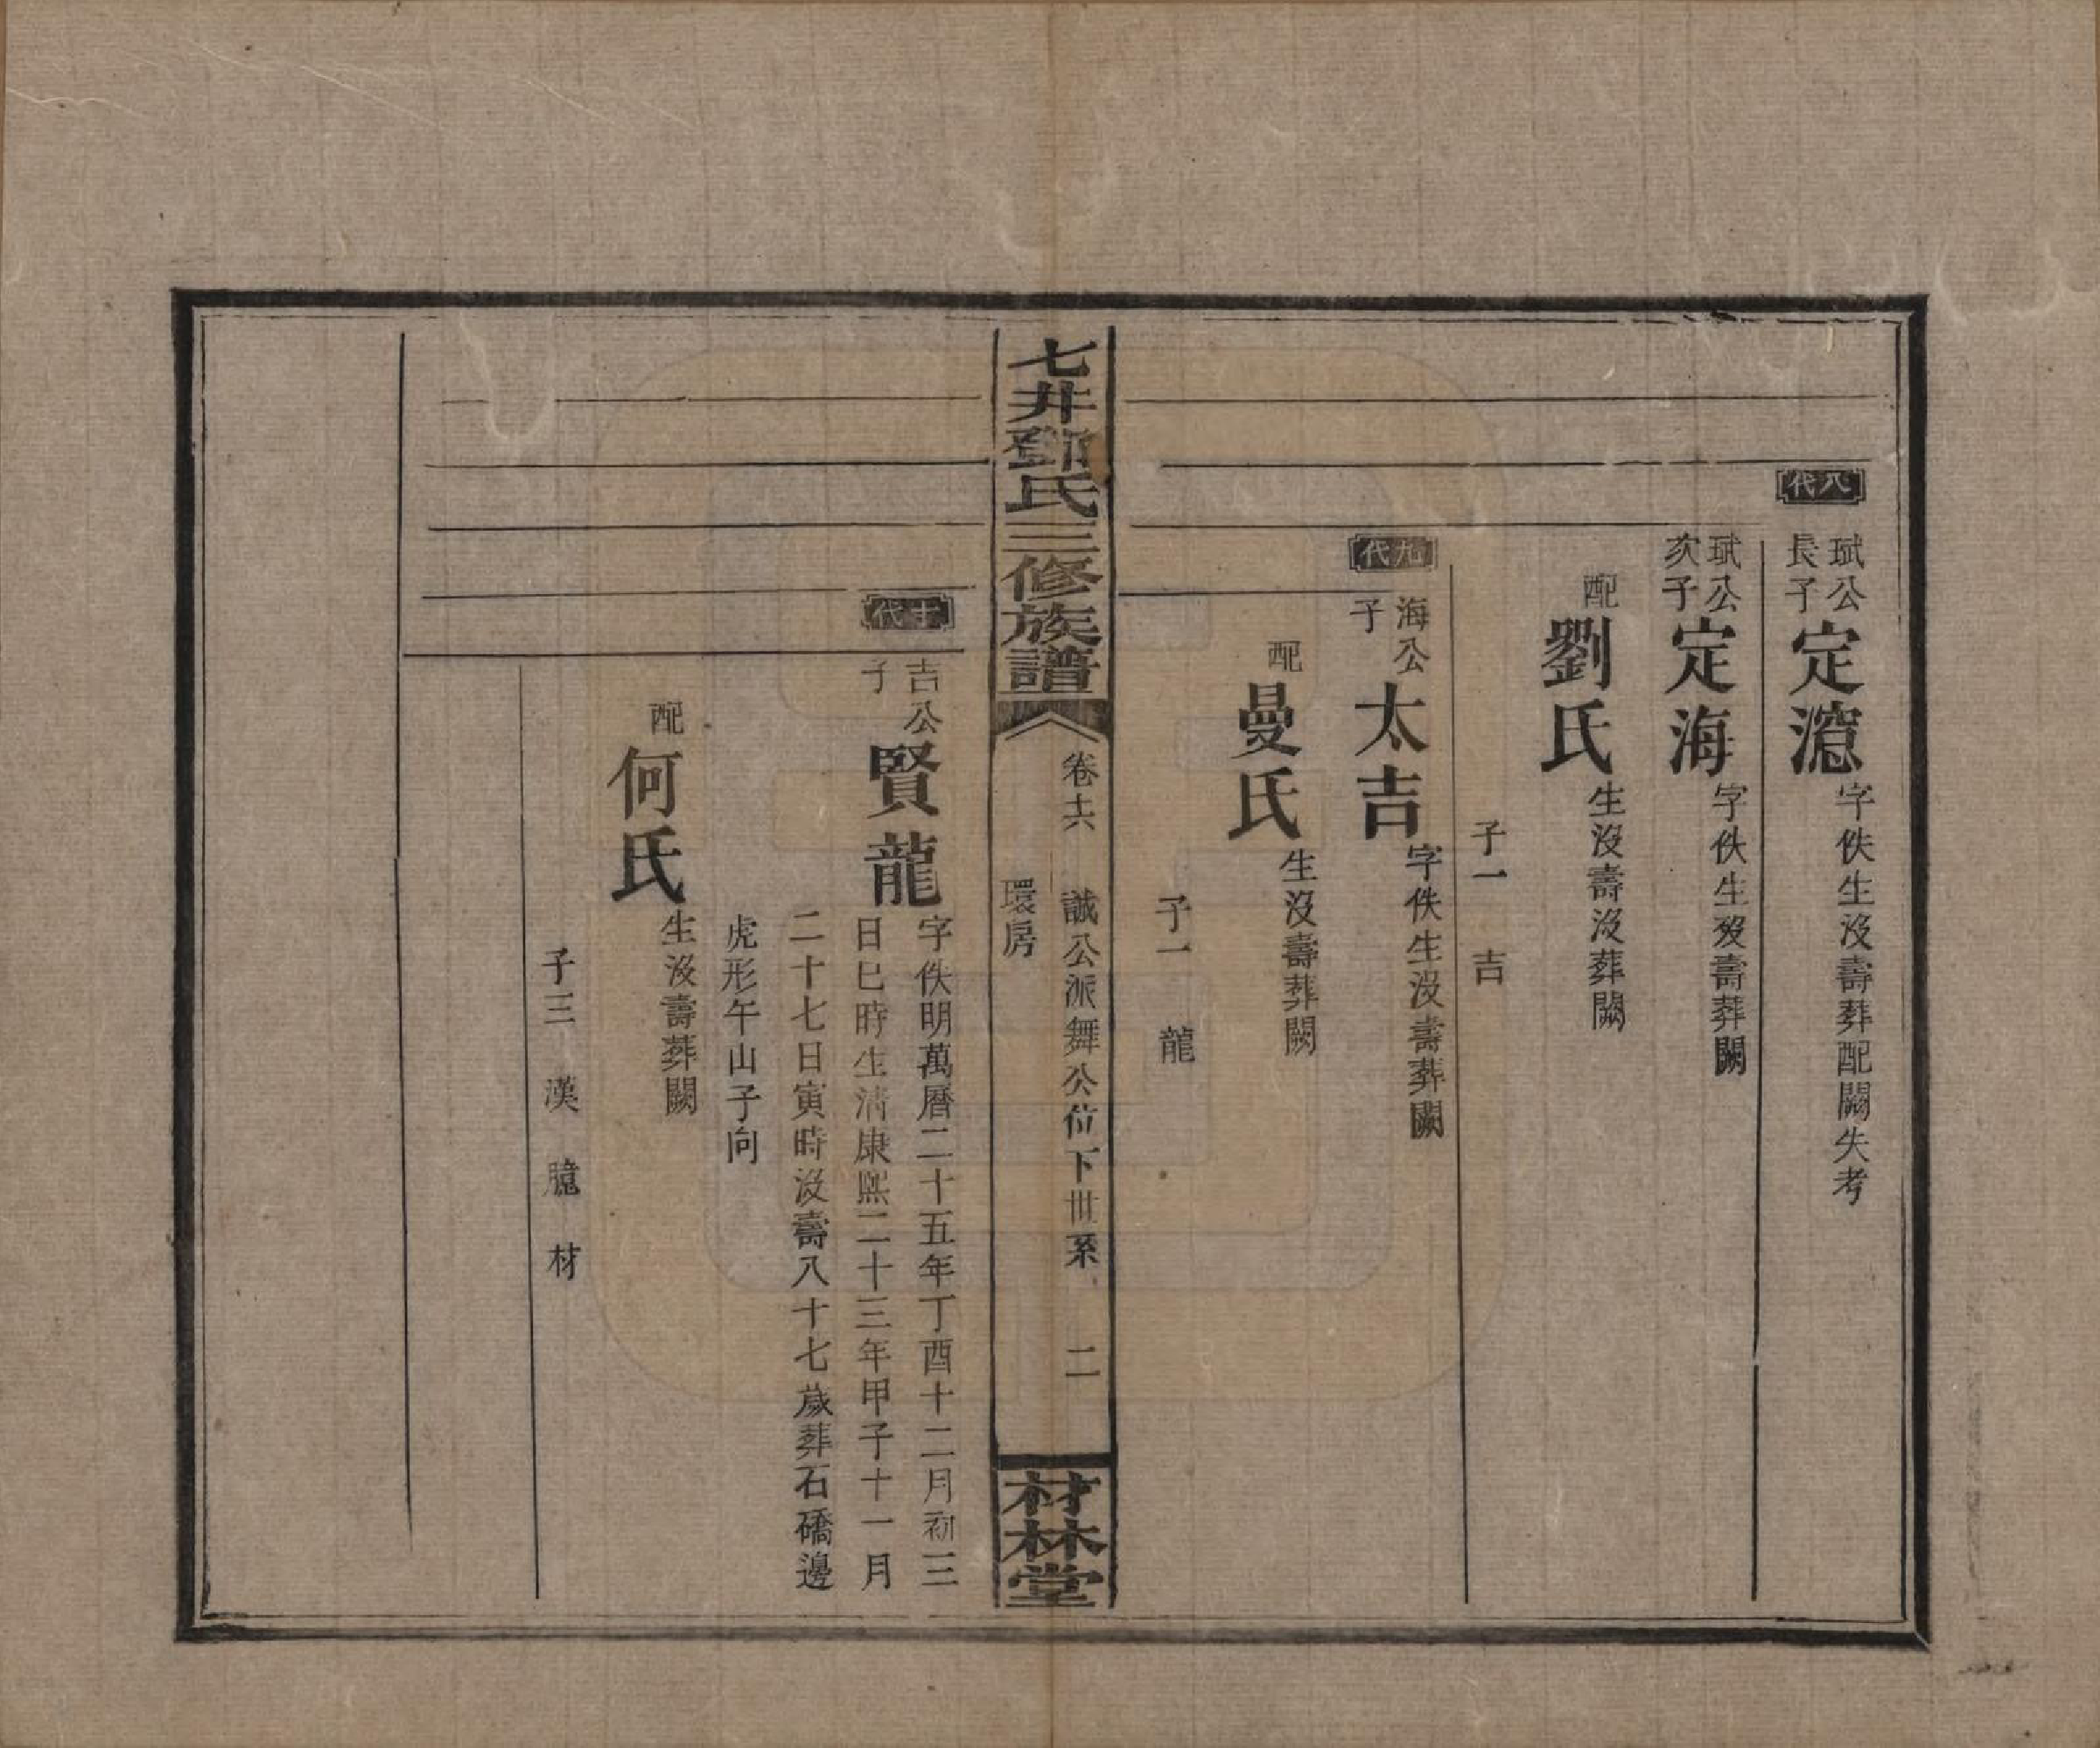 八代
斌公
長子
定㵽
字佚生没壽葬配闕失考
斌公
次子
定海
字佚生歿壽葬闕
配
劉氏
生没壽没葬闕
子一　吉
九代
海公
子
太吉
字佚生没壽葬闕
配
曼氏
生没壽葬闕
子一　龍
七井鄧氏三修族譜
卷十六　誠公派舞公位下世系　二
環房
材林堂
十代
吉公
子
賢龍
字佚明萬曆二十五年丁酉十二月初三
日巳時生清康熙二十三年甲子十一月
二十七日寅時没壽八十七歲葬石礄邊
虎形午山子向
配
何氏
生没壽葬闕
子三　漢　臆　材